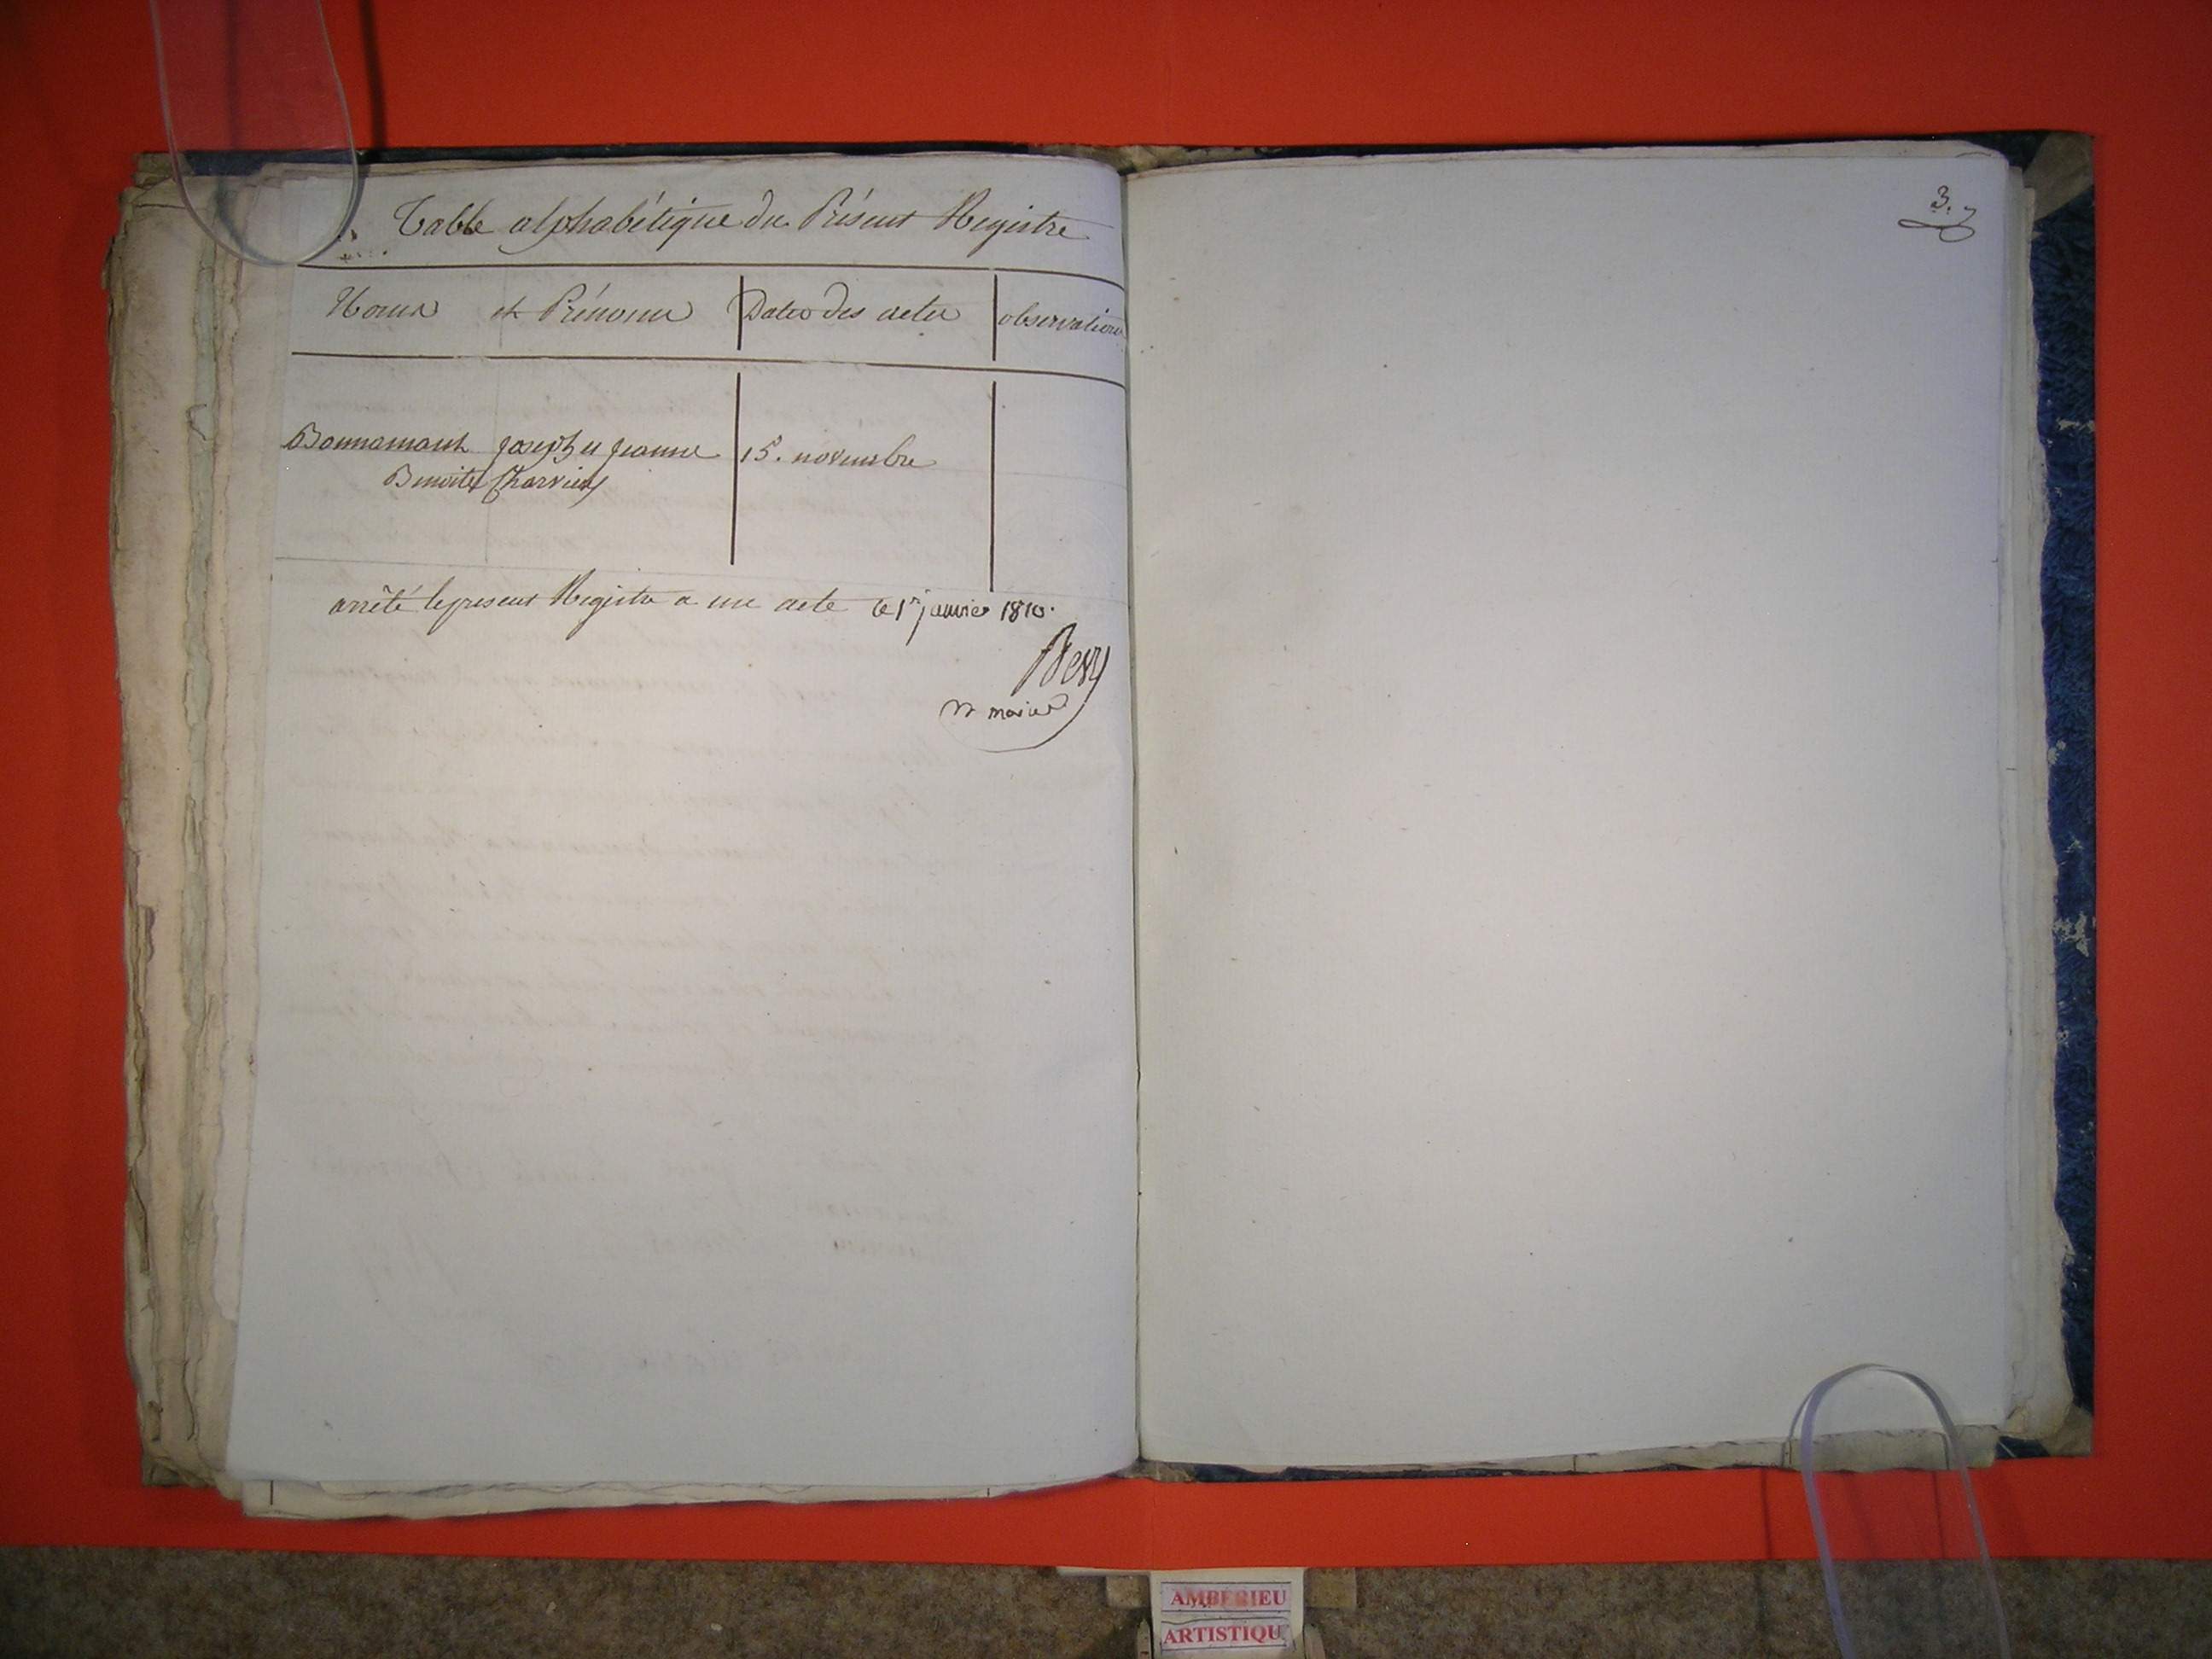 Table alphabétique du Présent Registre
Noms et Prénoms Dates des actes observations
Bonnamant joseph et jeanne 15. novembre
Benoite Charvieu
arrêté le present Registre a une acte le 1er janvier 1810.
maire
3.
AMBERIEU
ARTISTIQU